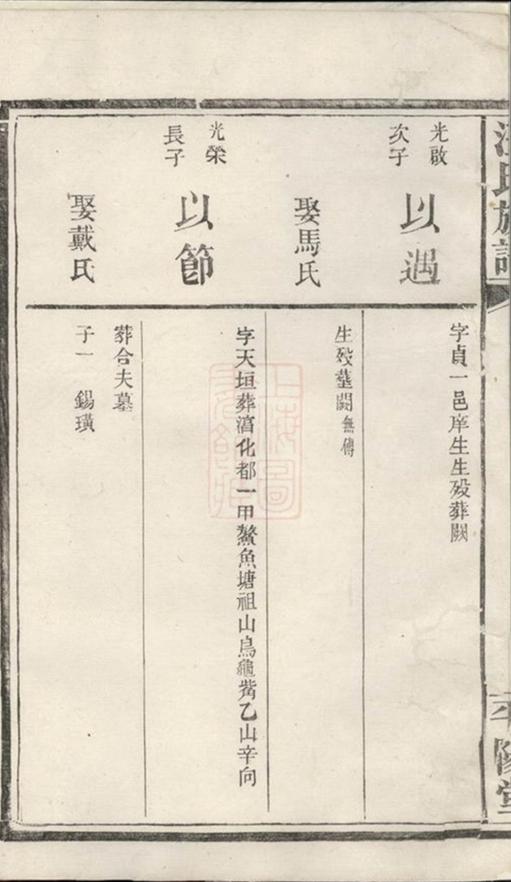 汪氏族譜
平陽堂
光啟
次子
以遇
字貞一邑庠生生歿葬闕
娶馬氏
生歿墓闕無傳
光榮
長子
以節
字天垣葬滀化都一甲鰲魚塘祖山烏龜嘴乙山辛向
娶戴氏
葬合夫墓
子一 錫璜